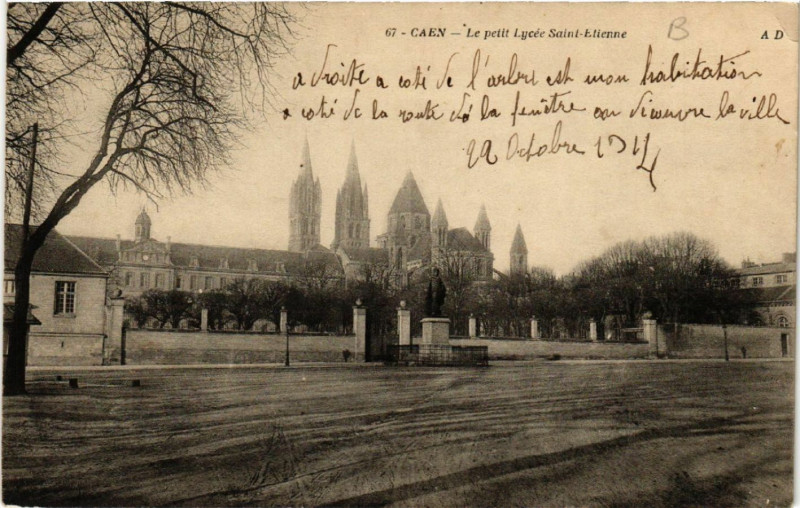 67 - CAEN - Le petit Lycée Saint-Etienne
B
A D
a droite a coté de l'arbre est mon habitation
a coté de la route dé la fenêtre on découvre la ville
22 Octobre 1914